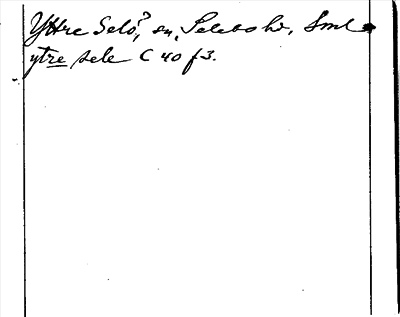 Yttre Selö?, sn, Selebo hd, Sml
ytre sele C 40 f 3.